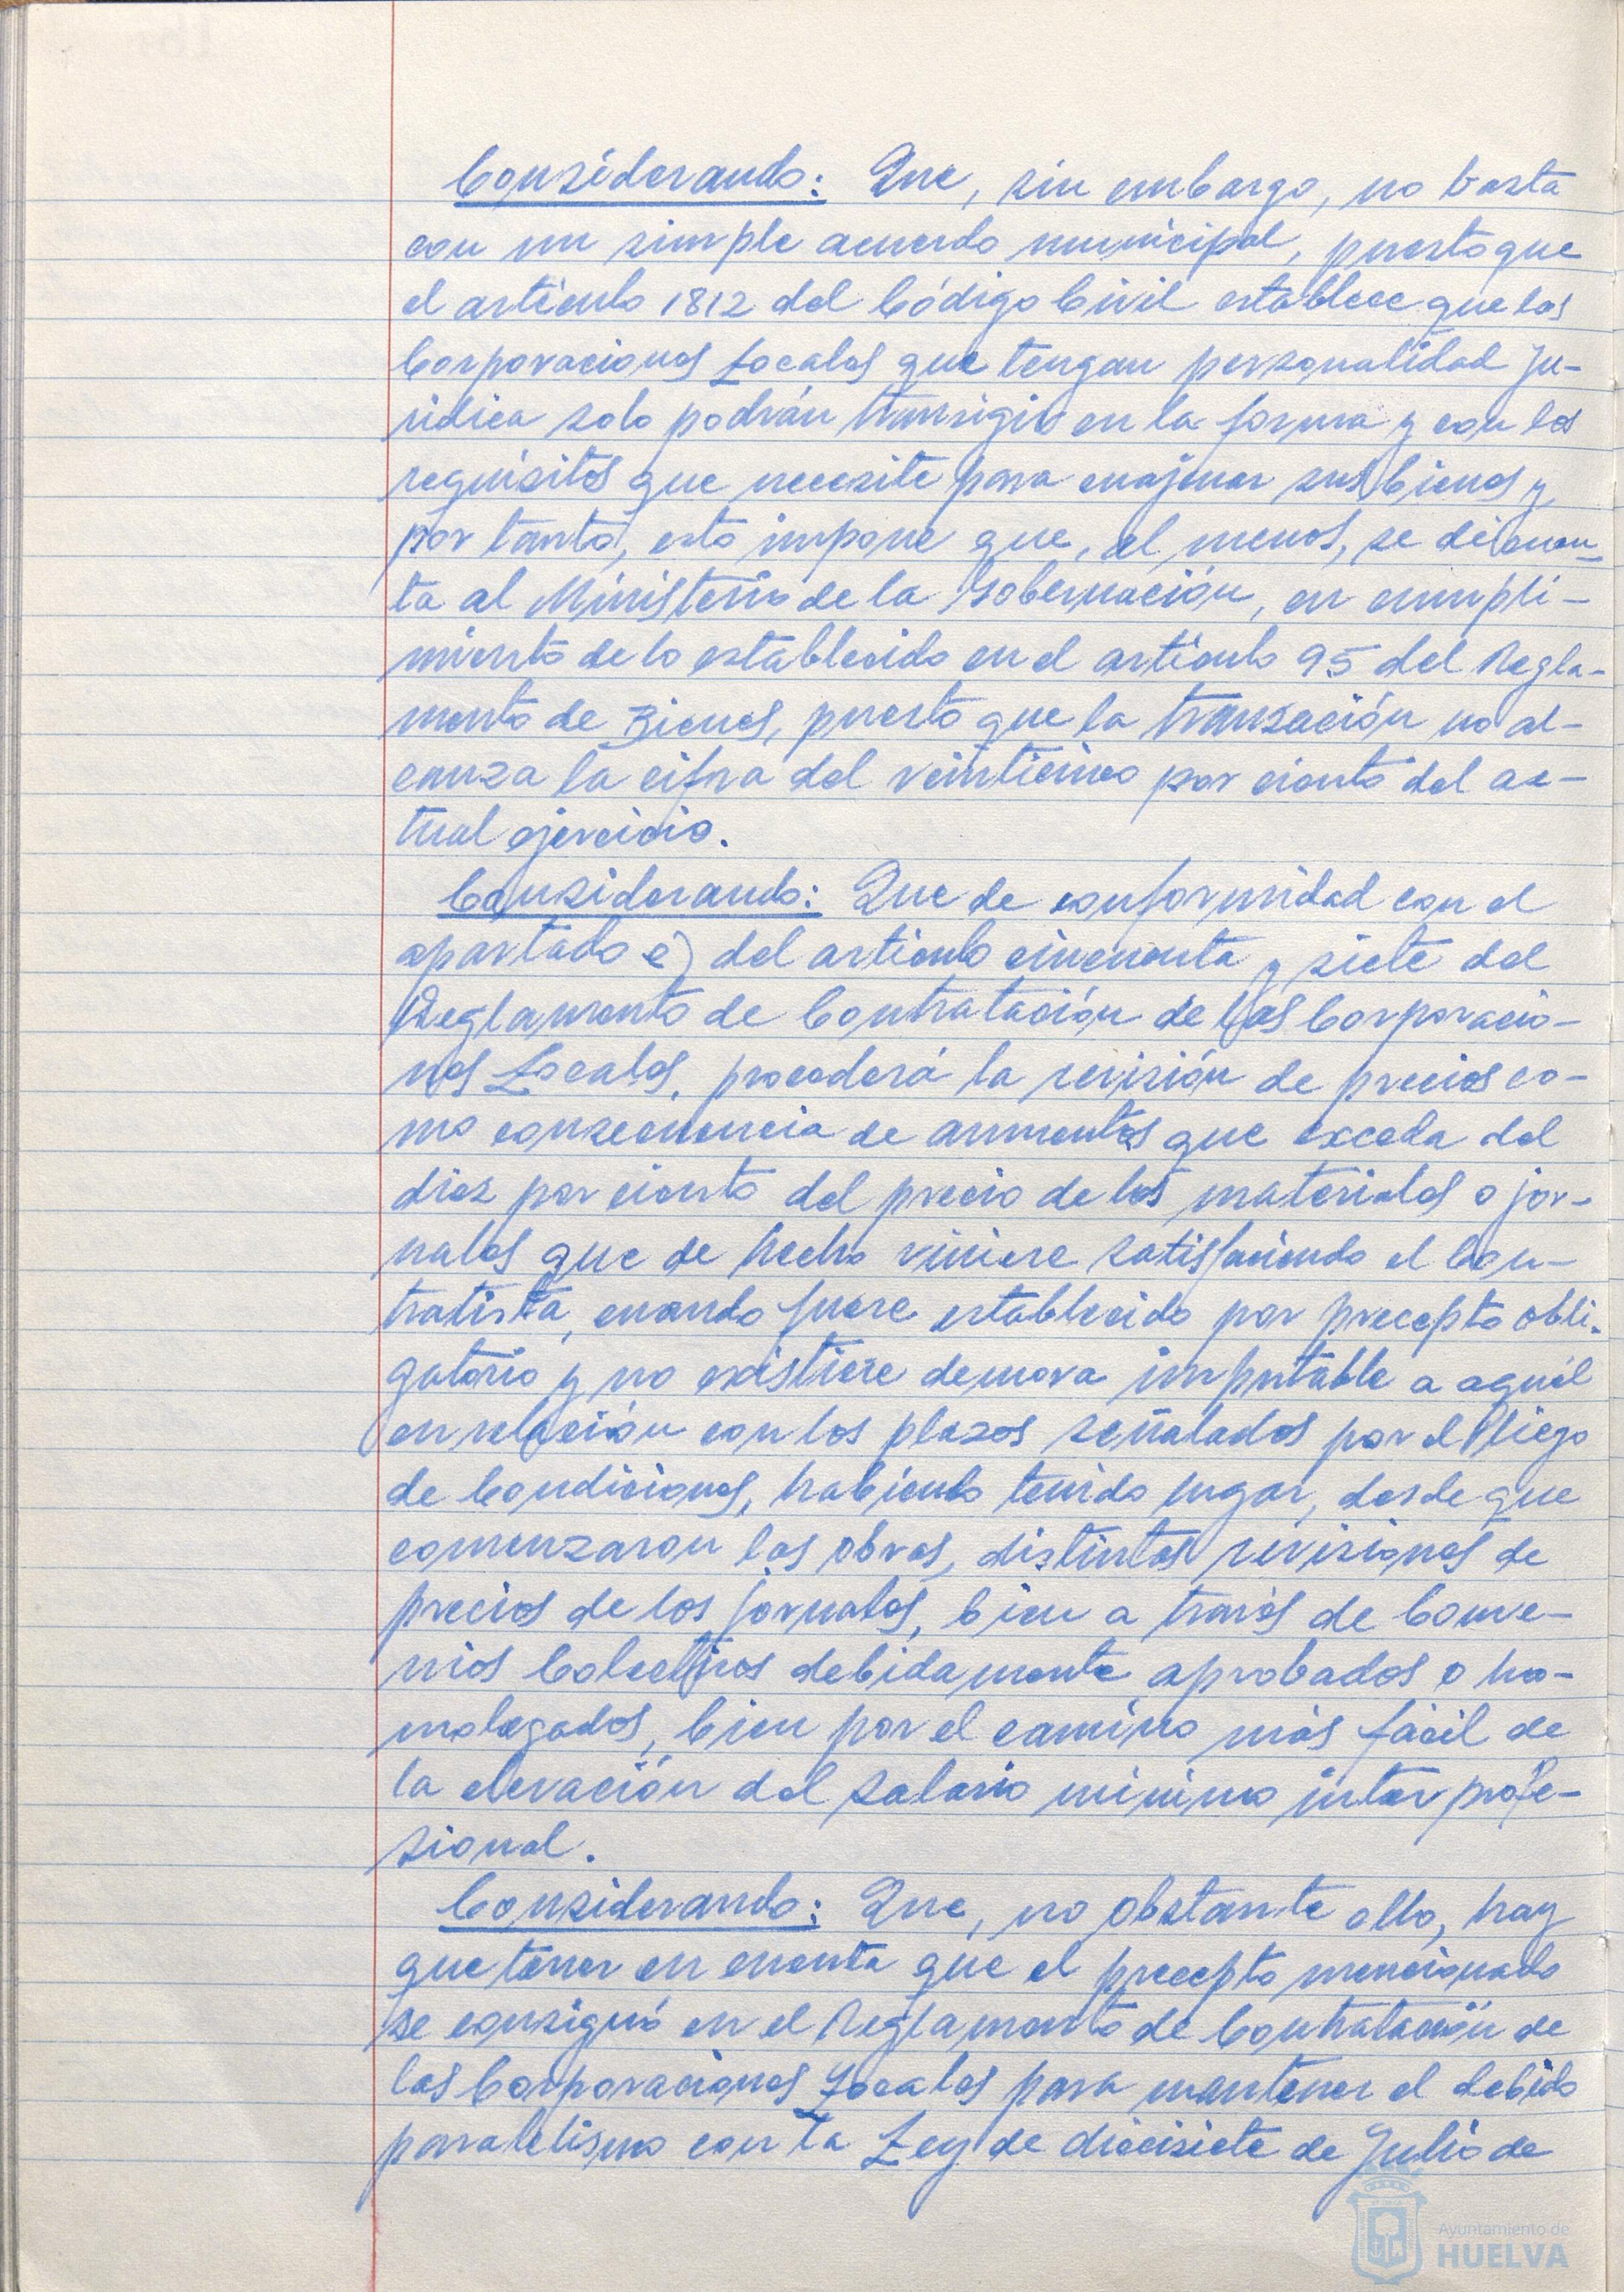 Considerando: Que, sin embargo, no basta
con un simple acuerdo municipal, puesto que
el artículo 1812 del Código Civil establece que las
Corporaciones Locales que tengan personalidad Ju-
rídica solo podrán transigir en la forma y con los
requisitos que necesite para enajenar sus bienes y,
por tanto, esto impone que, al menos, se dé cuen-
ta al Ministerio de la Gobernación, en cumpli-
miento de lo establecido en el artículo 95 del Regla-
mento de Bienes, puesto que la transación no al-
canza la cifra del veinticinco por ciento del ac-
tual ejercicio.
Considerando: Que de conformidad con el
apartado e) del artículo cincuenta y siete del
Reglamento de Contratación de las Corporacio-
nes Locales, procederá la revisión de precios co-
mo consecuencia de aumentos que exceda del
diez por ciento del precio de los materiales o jor-
nales que de hecho viniere satisfaciendo el Con-
tratista, cuando fuere establecido por precepto obli-
gatorio y no existiere demora imputable a aquél
en relación con los plazos señalados por el Pliego
de Condiciones, habiendo tenido lugar, desde que
comenzaron las obras, distintas revisiones de
precios de los jornales, bien a través de Conve-
nios Colectivos debidamente aprobados o ho-
mologados, bien por el camino más fácil de
la elevación del salario mínimo interprofe-
sional.
Considerando: Que, no obstante ello, hay
que tener en cuenta que el precepto mencionado
se consignó en el Reglamento de Contratación de
las Corporaciones Locales para mantener el debido
paralelismo con la Ley de diecisiete de Julio de
Ayuntamiento de
HUELVA